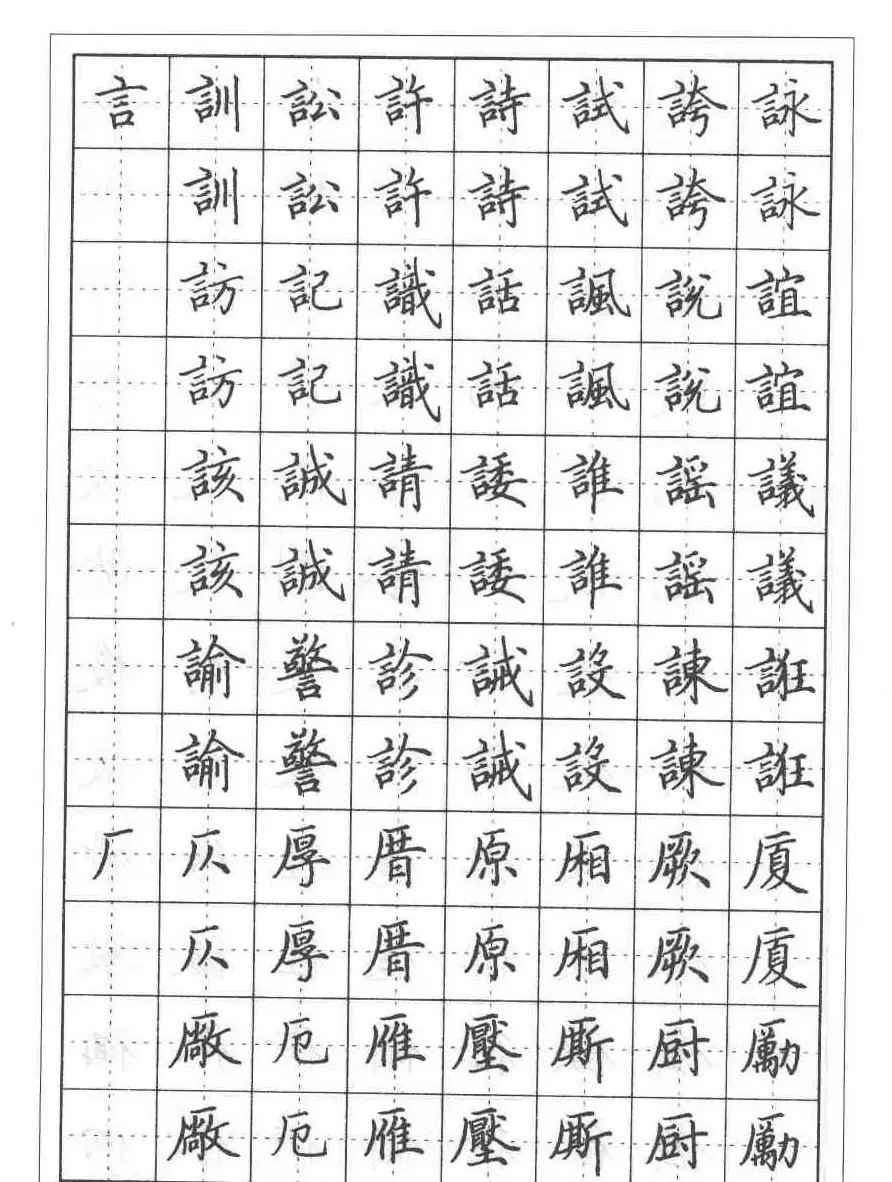 言訓訟許詩試誇詠
訓訟許詩試誇詠
訪記識話諷說誼
訪記識話諷說誼
該誠請諉誰謡議
該誠請諉誰謡議
諭警診誡設諫誑
諭警診誡設諫誑
厂仄厚厝原厢厥厦
仄厚厝原厢厥厦
廠厄雁壓厮厨勵
廠厄雁壓厮厨勵